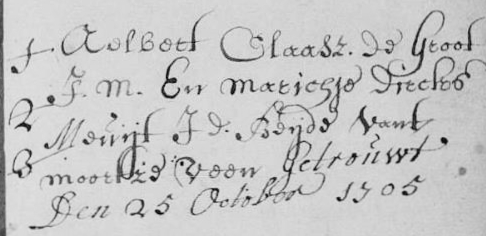 1. Aelbert Claasz. de Groot
J. M. En Marichje Dircks
2 Meuijt J d. Beijde vant
3 moortje veen Getrouwt
Den 25 October 1705